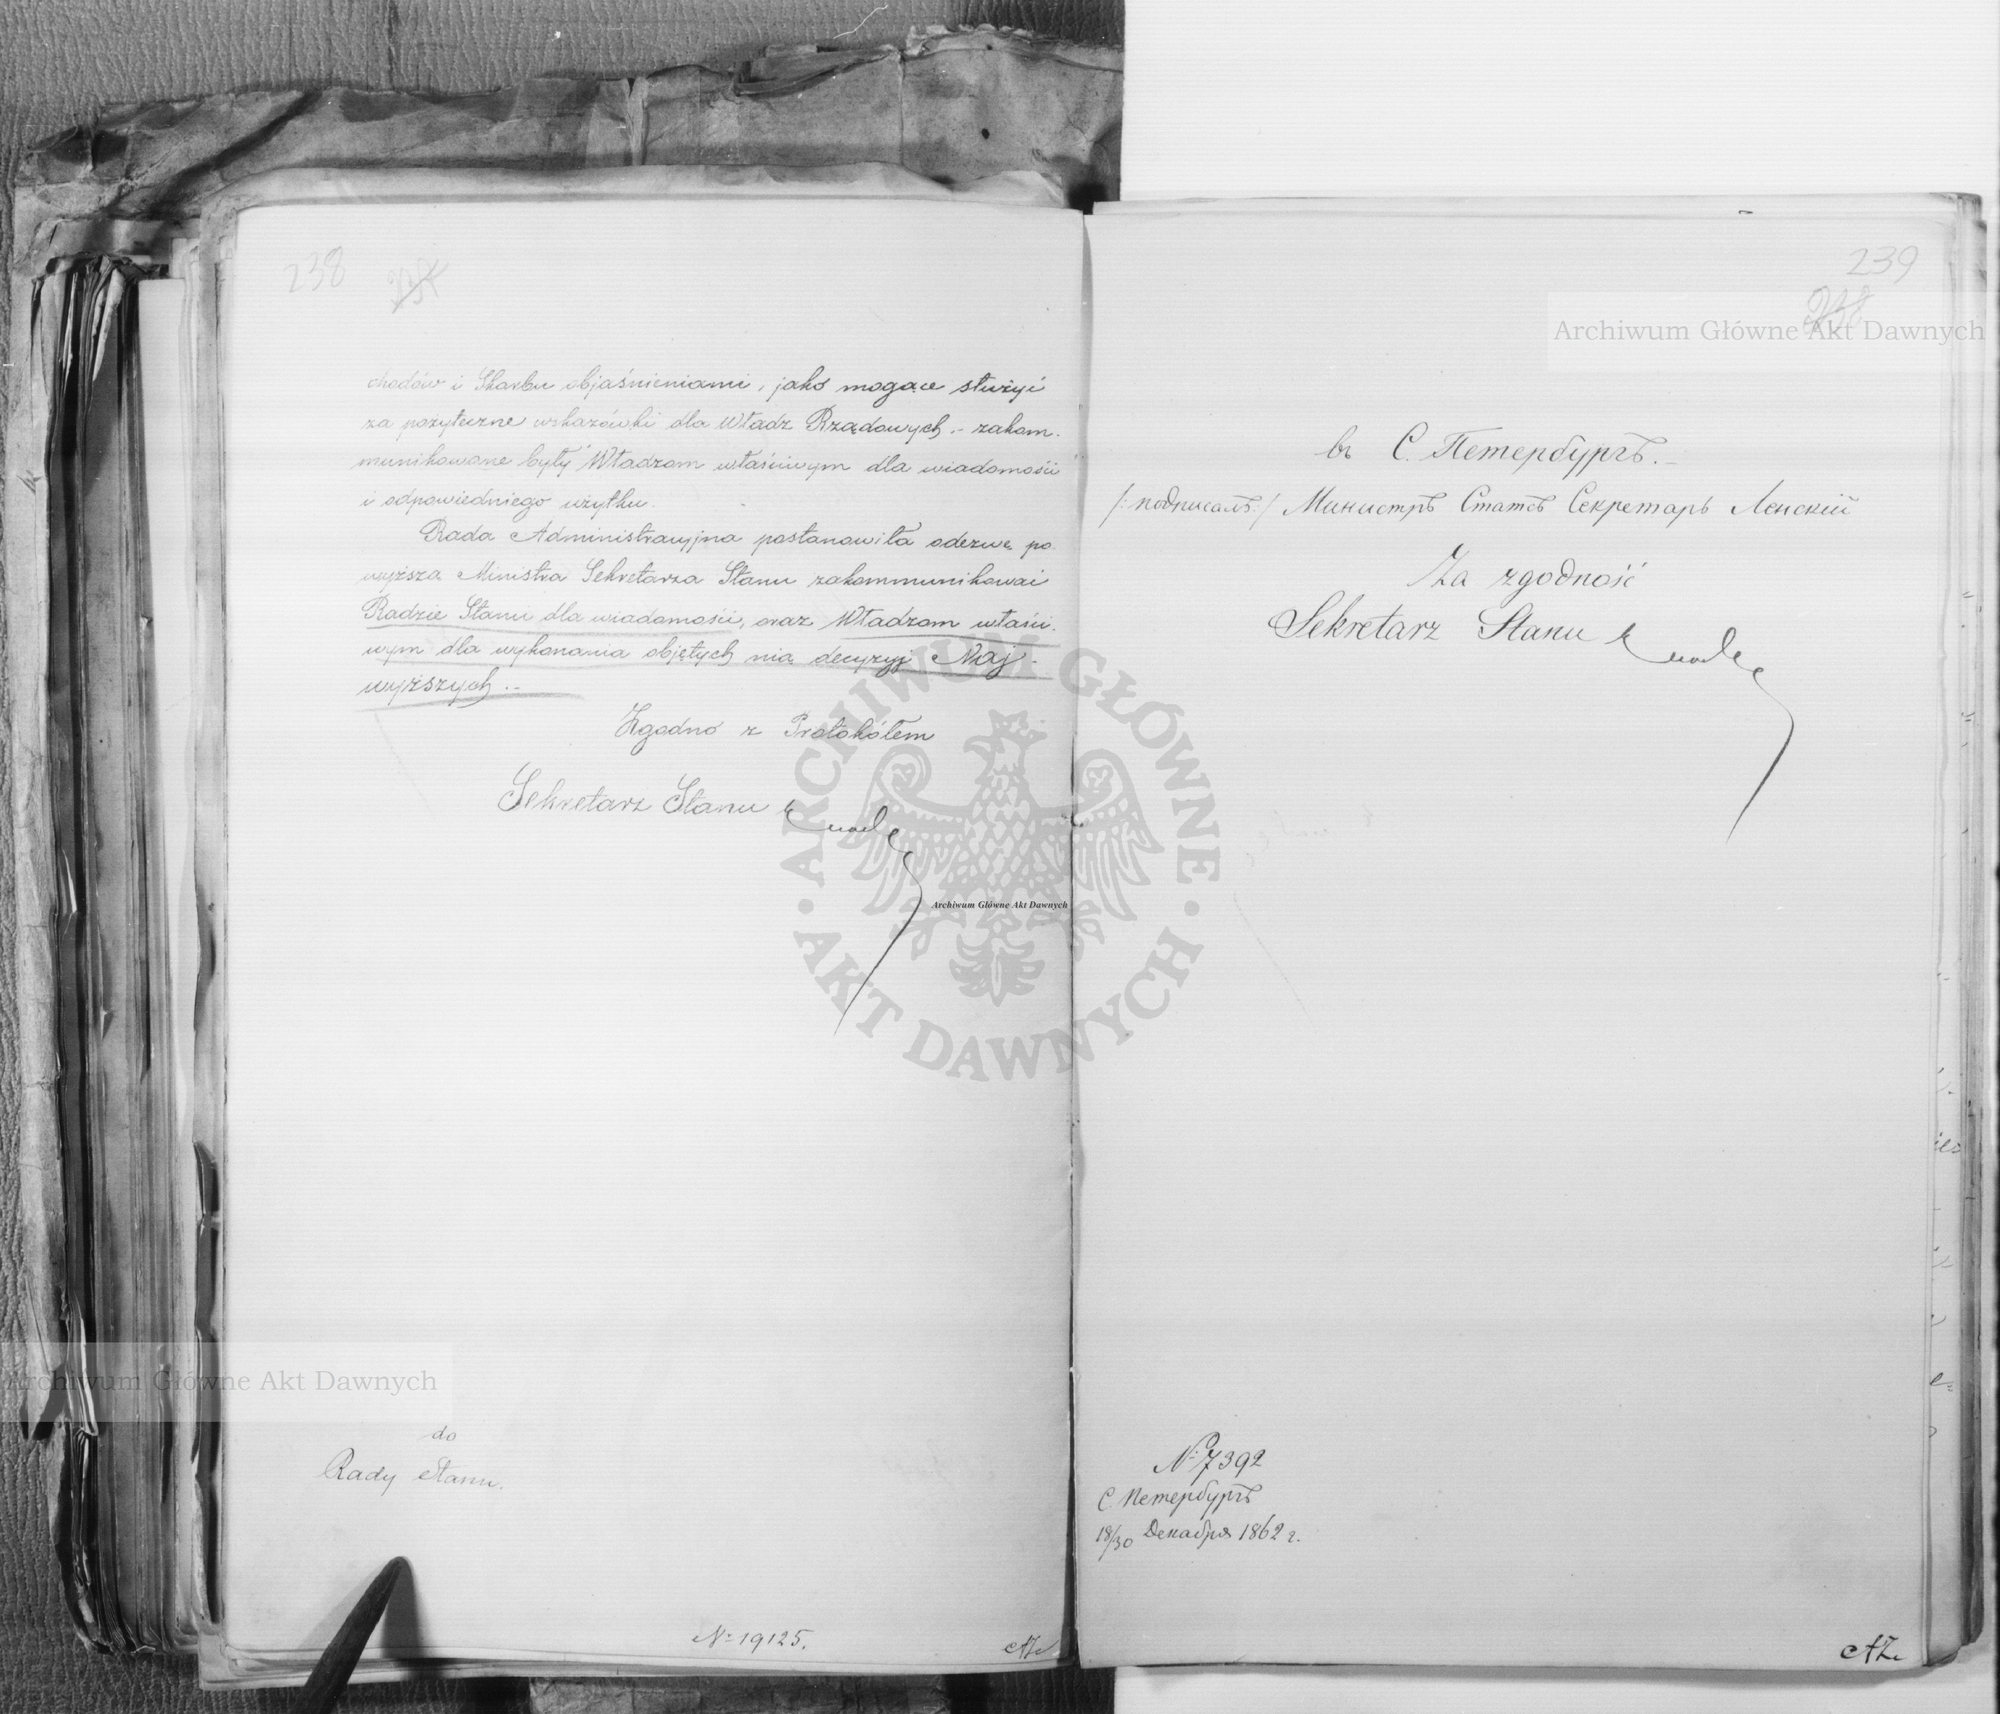 238
chodów i Skarbu objaśnieniami, jako mogące służyć
za pożyteczne wskazówki dla Władz Rządowych.- zakom-
munikowane były Władzom właściwym dla wiadomości
i odpowiedniego użytku.
Rada Administracyjna postanowiła odezwę po-
wyższą Ministra Sekretarza Stanu zakommunikować
Radzie Stanu dla wiadomości, oraz Władzom właści-
wym dla wykonania objętych nią decyzyj Naj-
wyższych.-
Zgodno z Protokółem
Sekretarz Stanu
do
Rady Stanu.
№ 19125.
Archiwum Główne Akt Dawnych
ARCHIWUM GŁÓWNE AKT DAWNYCH
Archiwum Główne Akt Dawnych
239
238
Archiwum Główne Akt Dawnych
въ С. Петербургѣ.-
/:подписалъ:/ Министръ Статсъ Секретарь Ленскій
Za zgodność
Sekretarz Stanu
№ 7392
С. Петербургъ
18/30 Декабря 1862 г.